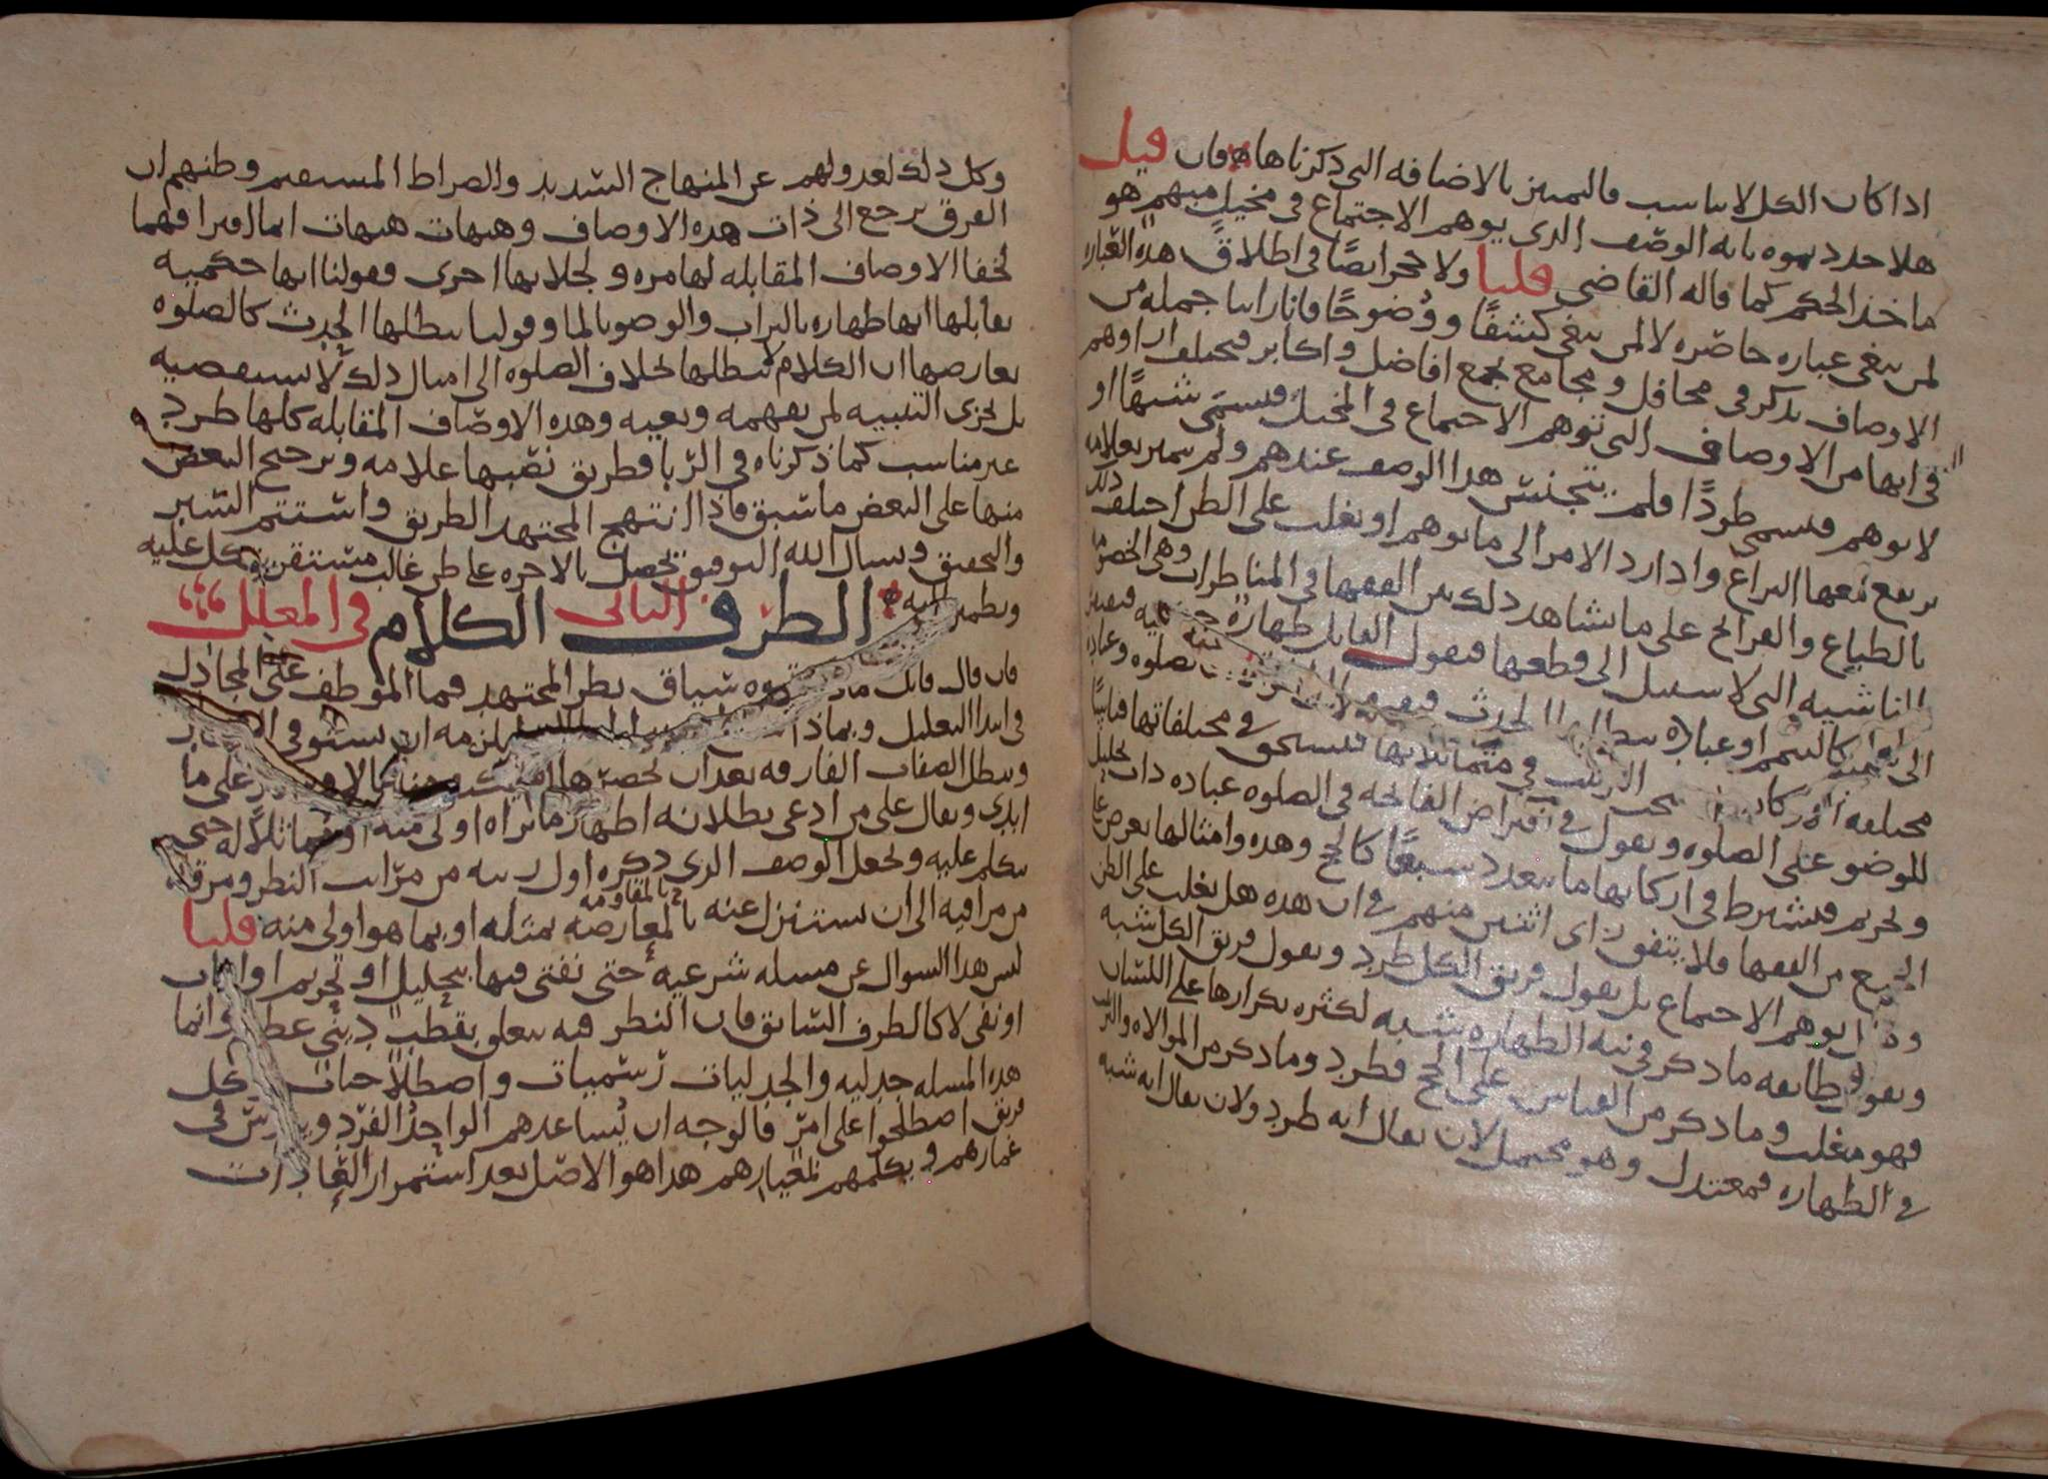 اذا كان الكل لا يناسب فالتمييز بالاضافه التى ذكرناها فان قيل
هلا حددتموه بانه الوصف الذى يوهم الاجتماع فى مخيل مبهم هو
ماخذ الحكم كما قاله القاضى قلنا ولا حجر ايضًا فى اطلاق هذه العباره
لمن يبغى عباره حاصره لا لمن يبغى كشفًا ووُضوحًا فانا راينا جمله من
الاوصاف تذكر فى محافل ومجامع تجمع افاضل واكابر فيختلف اراوهم
فى انها من الاوصاف التى توهم الاجتماع فى المخيل فيسمى شبهًا او
لا يوهم فيسمى طردًا فلم يتجنس هذا الوصف عندهم ولم يتميز بعلامه
يرتفع معها النزاع واذا رد الامر الى ما يوهم او يغلب على الظن اختلف ذلك
بالطباع والقرائح على ما نشاهد ذلك بين الفقها فى المناظرات وهى الخصومه
الناشيه التى لا سبيل الى قطعها فيقول القايل طهارة
الى كالتيمم او عبارة الحدث صلوه وعباده
مختلفه الاركان الترتيب فى متماثلاتها فيستحق فى مختلفاتها قياسًا
للوضو على الصلوه ويقول فى افتراض الفاتحه فى الصلوه عباده ذات تحليل
وتحريم فيشترط فى اركانها ما يتعدد سبعًا كالحج وهذه وامثالها يعرض على
الجميع من الفقها فلا يتفق راى اثنين منهم فى ان هذه هل يغلب على الظن
او يوهم الاجتماع بل يقول فريق الكل طرد ويقول فريق الكل شبه
ويقول طائفه ما ذكر فى نيه الطهاره شبه لكثره تكرارها على اللسان
فهو مغلب وما ذكر من القياس على الحج فطرد وما ذكر من الموالاه والترتيب
فى الطهاره فمعتدل وهو محتمل لان يقال انه طرد ولان يقال انه شبه
وكل ذلك لعدولهم عن المنهاج السديد والصراط المستقيم وظنهم ان
الفرق يرجع الى ذات هذه الاوصاف وهيهات هيهات انما افترا فهما
لخفا الاوصاف المقابله لها مره ولجلايها اخرى فقولنا انها حكميه
يقابلها انها طهاره بالتراب والوضو بالما وقولنا يبطلها الحدث كالصلوه
يعارضها ان الكلام لا يبطلها بخلاف الصلوه الى امثال ذلك لا نستقصيه
بل يجزى التنبيه لمن يفهمه ويعيه وهذه الاوصاف المقابله كلها طرد
غير مناسب كما ذكرناه فى الربا فطريق نصبها علامه وترجيح البعض
منها على البعض ما سبق فاذا انتهج المجتهد الطريق واستتم السبر
والتحقيق ونسال الله التوفيق تحصل بالاخره على ظن غالب مستقر يتكل عليه
ويطمين اليه الطرف الثانى الكلام فى المعلل
فان قال قائل ما ذكرتموه سياق نظر المجتهد فما الموظف على المجادل
فى ابتدا التعليل وبماذا يلزمه ان يستوفى
ويبطل الصفات الفارقه بعد ان يحصرها على ما
ابدى ويقال على من ادعى بطلانه اظهار ما نراه اولى منه او مماثلًا له حتى
نتكلم عليه ونجعل الوصف الذى ذكره اول رتبه من مراتب النظر ومرقاه
من مراقيه الى ان يستنزل عنه بالمعارضه بالمقاومه بمثله او بما هو اولى منه قلنا
ليس هذا السوال عن مسله شرعيه حتى نفتى فيها بتحليل او تحريم او اثبات
او نفى لا كالطرف السابق فان النظر فيه يتعلق بقطب دينى عظيم وانما
هذه المسله جدليه والجدليات رسميات واصطلاحات وكل
فريق اصطلحوا على امر فالوجه ان يُساعدهم الواحد الفرد ويدرس فى
غمارهم ويكلمهم بمعيارهم هذا هو الاصل بعد استمرار العادات